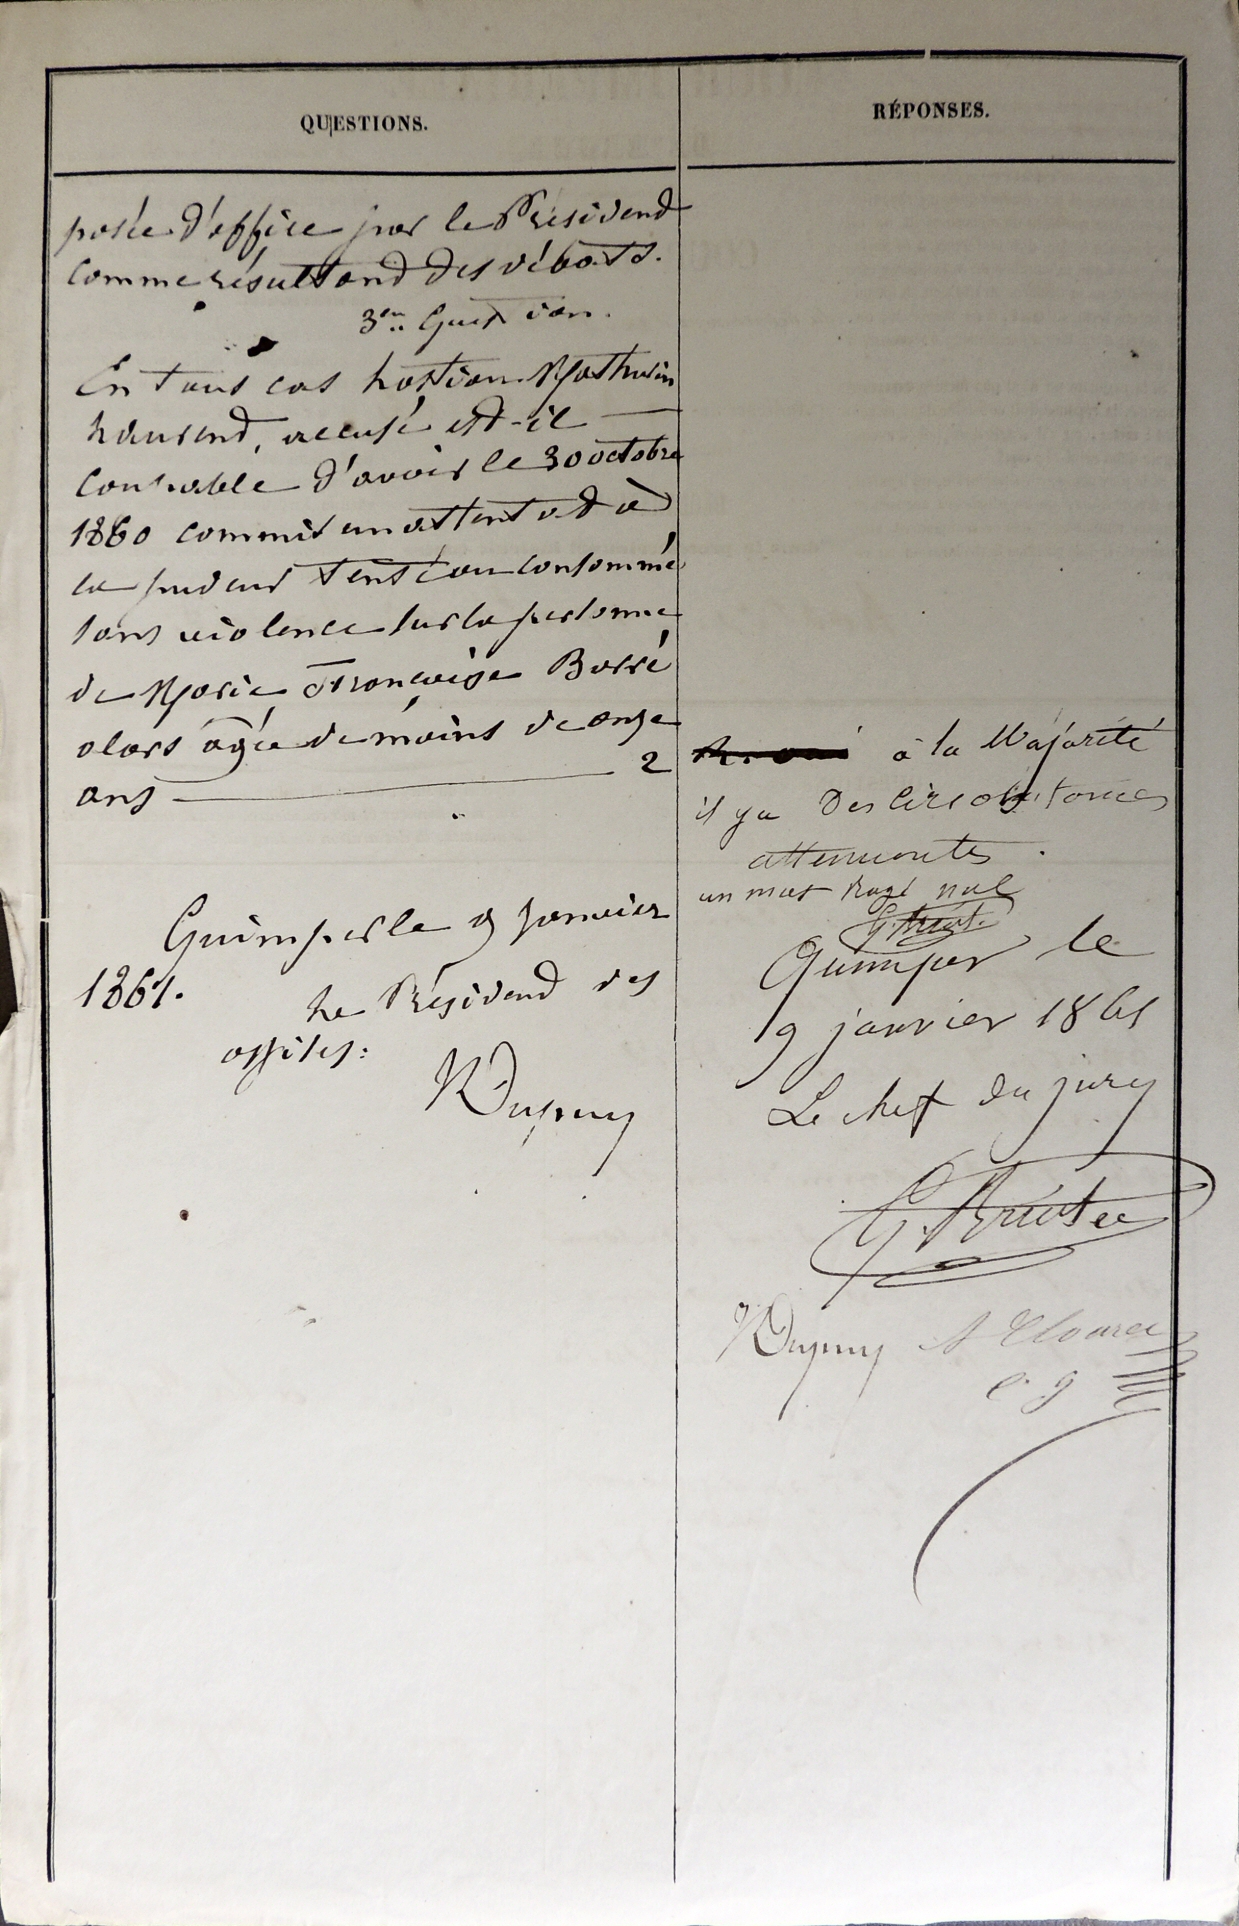 QUESTIONS.
posée d'office par le Président
comme résultant des débats.
3em. Question.
En tous cas Mathurin
accusé est-il
coupable d'avoir le 30 octobre
1860 commis un attentat à
la pudeur tenté ou consommé
sans violence sur la personne
de Marie Françoise Barré
alors âgée de moins de onze
ans 2
Quimper le 9 Janvier
1861.
Le Président des
assises:
Dupuy
RÉPONSES.
à la Majorité
il y a des circonstances
attenuantes.
un mot rayé nul
Quimper le
9 janvier 1861
Le chef du jury
Dupuy